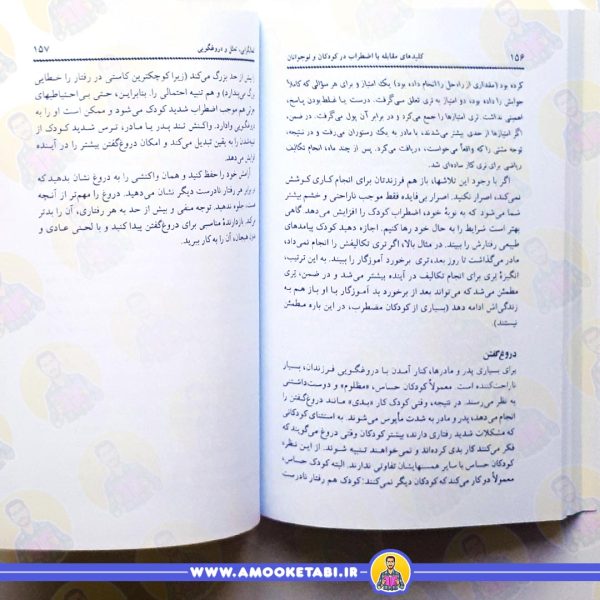 ۱۵۶
کلیدهای مقابله با اضطراب در کودکان و نوجوانان
کرده بود (مقداری از راه‌حل را انجام داده بود) یک امتیاز و برای هر سؤالی که کاملاً
جوابش را داده بود، دو امتیاز به تری تعلق می‌گرفت. درست یا غلط بودن پاسخ،
اهمیتی نداشت. تری امتیازها را جمع می‌کرد و در برابر آن پول می‌گرفت. در ضمن،
اگر امتیازها از حدی بیشتر می‌شدند، با مادر به یک رستوران می‌رفت و در نتیجه،
توجه مثبتی که واقعاً می‌خواست، دریافت می‌کرد. پس از چند ماه، انجام تکالیف
ریاضی برای تری کار ساده‌ای شد.
اگر با وجود این تلاشها، باز هم فرزندتان برای انجام کاری کوشش
نمی‌کند، اصرار نکنید. اصرار بی‌فایده فقط موجب ناراحتی و خشم بیشتر
شما می‌شود که به نوبهٔ خود، اضطراب کودک را افزایش می‌دهد. گاهی
بهتر است شرایط را به حال خود رها کنیم. اجازه دهید کودک پیامدهای
طبیعی رفتارش را ببیند. در مثال بالا، اگر تری تکالیفش را انجام نمی‌داد،
مادر می‌گذاشت تا روز بعد، تری برخورد آموزگار را ببیند. به این ترتیب،
انگیزهٔ تری برای انجام تکالیف در آینده بیشتر می‌شد و در ضمن، تری
مطمئن می‌شد که می‌تواند بعد از برخورد بد آموزگار با او باز هم به
زندگی‌اش ادامه دهد (بسیاری از کودکان مضطرب، در این باره مطمئن
نیستند)
دروغ‌گفتن
برای بسیاری پدر و مادرها، کنار آمدن با دروغگویی فرزندان، بسیار
ناراحت‌کننده است. معمولاً کودکان حساس، «مظلوم» و دوست‌داشتنی
به نظر می‌رسند. در نتیجه، وقتی کودک کار «بدی» مانند دروغ‌گفتن را
انجام می‌دهد، پدر و مادر به شدت مأیوس می‌شوند. به استثنای کودکانی
که مشکلات شدید رفتاری دارند، بیشتر کودکان وقتی دروغ می‌گویند که
فکر می‌کنند کار بدی کرده‌اند و نمی‌خواهند تنبیه شوند. از این نظر،
کودکان حساس با سایر همسنهایشان تفاوتی ندارند. البته کودک حساس،
معمولاً دو کار می‌کند که کودکان دیگر نمی‌کنند: کودک هم رفتار نادرست
و دروغگویی
۱۵۷
از حد بزرگ می‌کند (زیرا کوچکترین کاستی در رفتار را خطایی
و هم تنبیه احتمالی را. بنابراین، حتی بی‌احتیاطیهای
هم موجب اضطراب شدید کودک می‌شود و ممکن است او را به
دروغگویی وادارد. واکنش تند پدر یا مادر، ترس شدید کودک از
را به یقین تبدیل می‌کند و امکان دروغ‌گفتن بیشتر را در آینده
می‌دهد.
خود را حفظ کنید و همان واکنشی را به دروغ نشان بدهید که
هر رفتار نادرست دیگر نشان می‌دهید. دروغ را مهم‌تر از آنچه
است، جلوه ندهید. توجه منفی و بیش از حد به هر رفتاری، آن را بدتر
بازدارندهٔ مناسبی برای دروغ‌گفتن پیدا کنید و با لحنی عادی و
هیجان، آن را به کار ببرید.
WWW.AMOOKETABI.IR